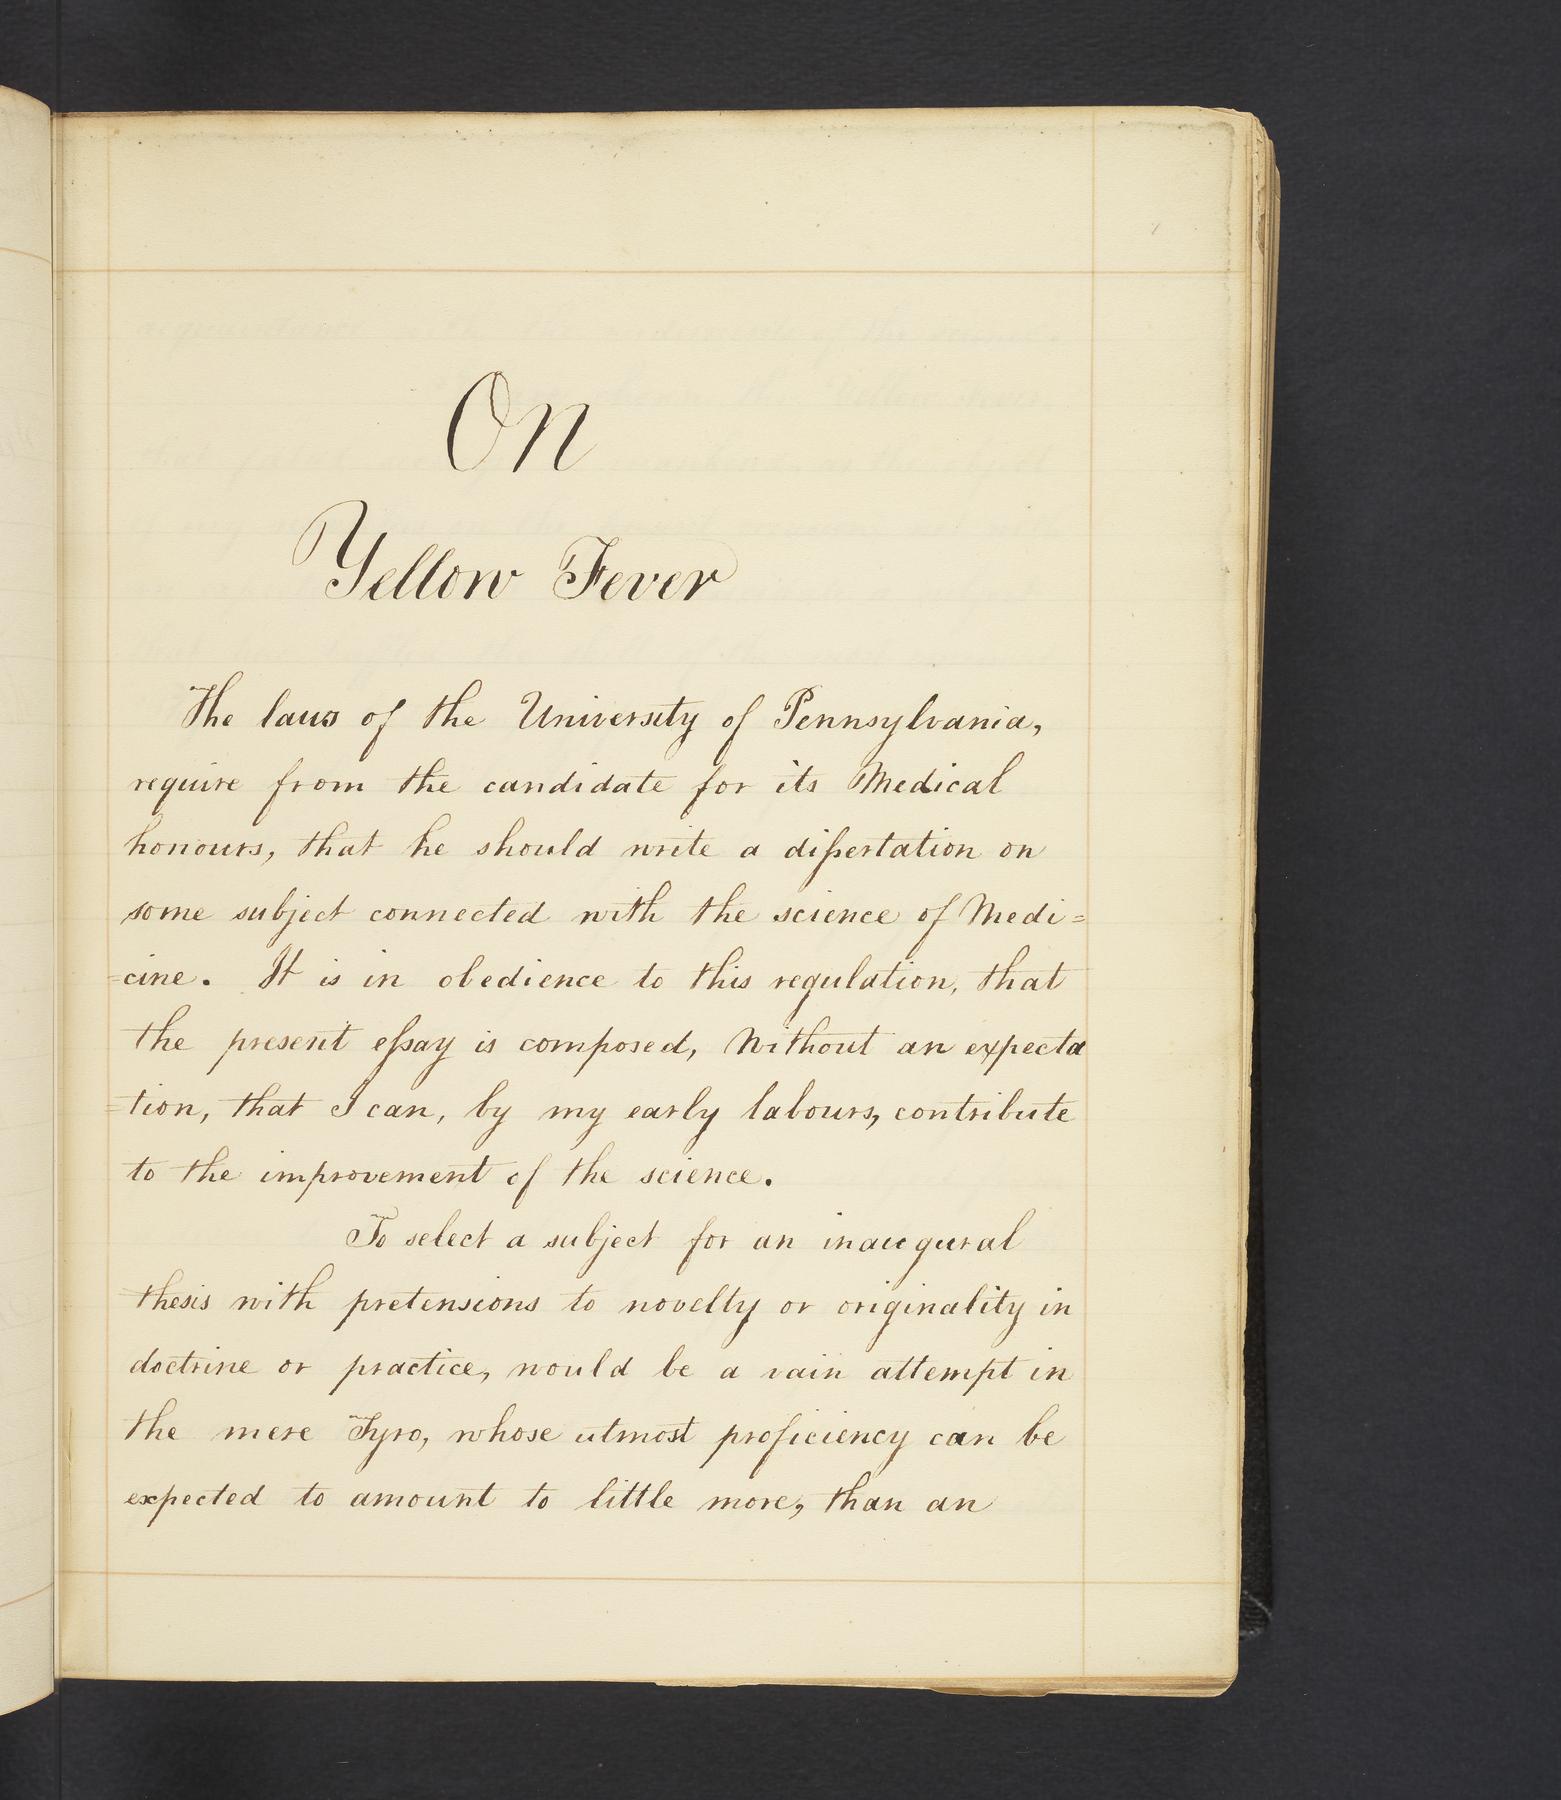 On
Yellow Fever
The laws of the University of Pennsylvania,
require from the candidate for its Medical
honours, that he should write a dißertation on
some subject connected with the science of Medi=
=cine. It is in obedience to this regulation, that
the present eßay is composed, Without an expecta
=tion, that I can, by my early labours, contribute
to the improvement of the science.
To select a subject for an inaugural
thesis with pretensions to novelty or originality in
doctrine or practice, would be a vain attempt in
the mere Tyro, whose utmost proficiency can be
expected to amount to little more, than an